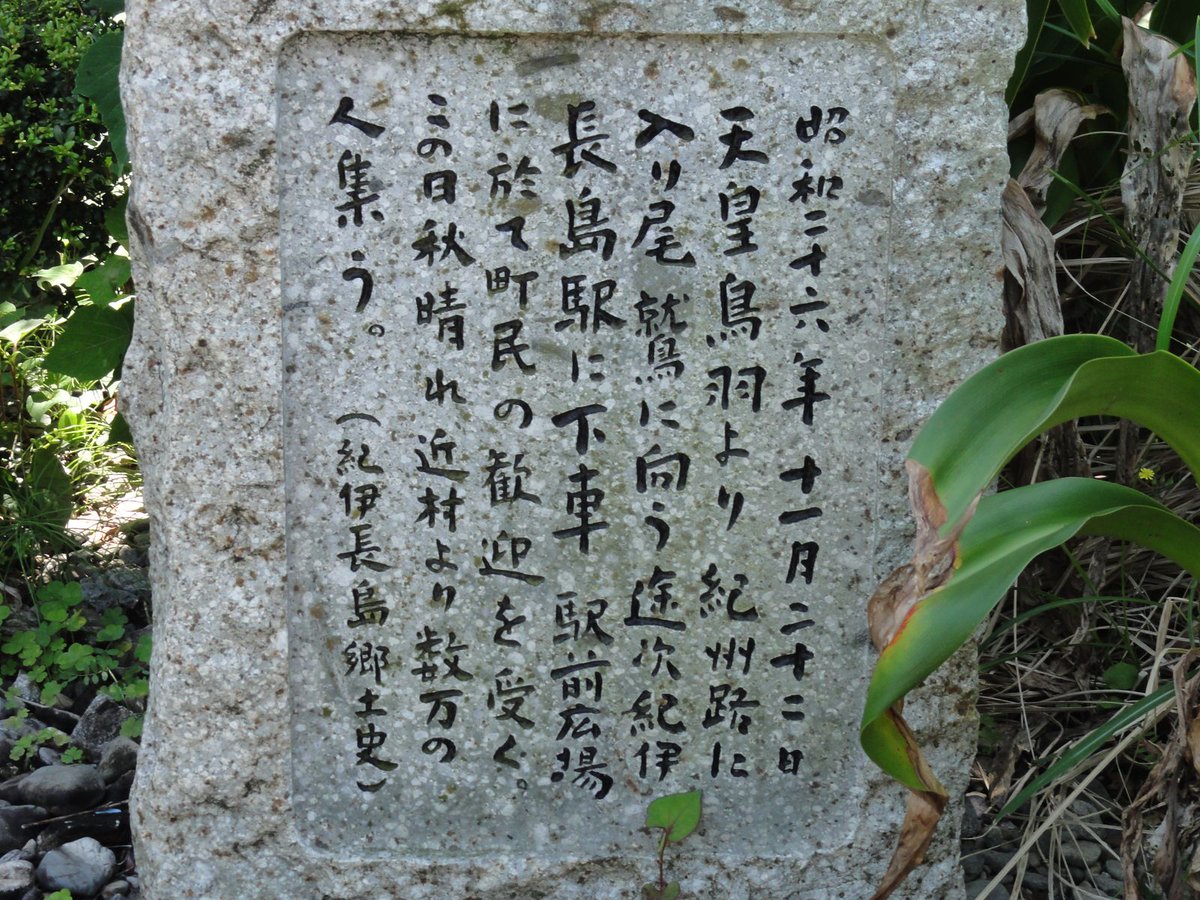 昭和二十六年十一月二十二日
天皇鳥羽より紀州路に
入り尾鷲に向う途次紀伊
長島駅に下車駅前広場
に於て町民の歓迎を受く。
この日秋晴れ近村より数万の
人集う。(紀伊長島郷土史)